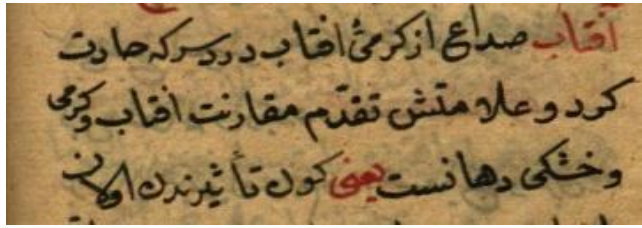 افتاب صداع از کرمئ افتاب درد سر که حادث
کردد و علامتش تقدّم مقارنت افتاب و کرمی
و خشکی دهانست یعنی کون تأثیرندن اولان